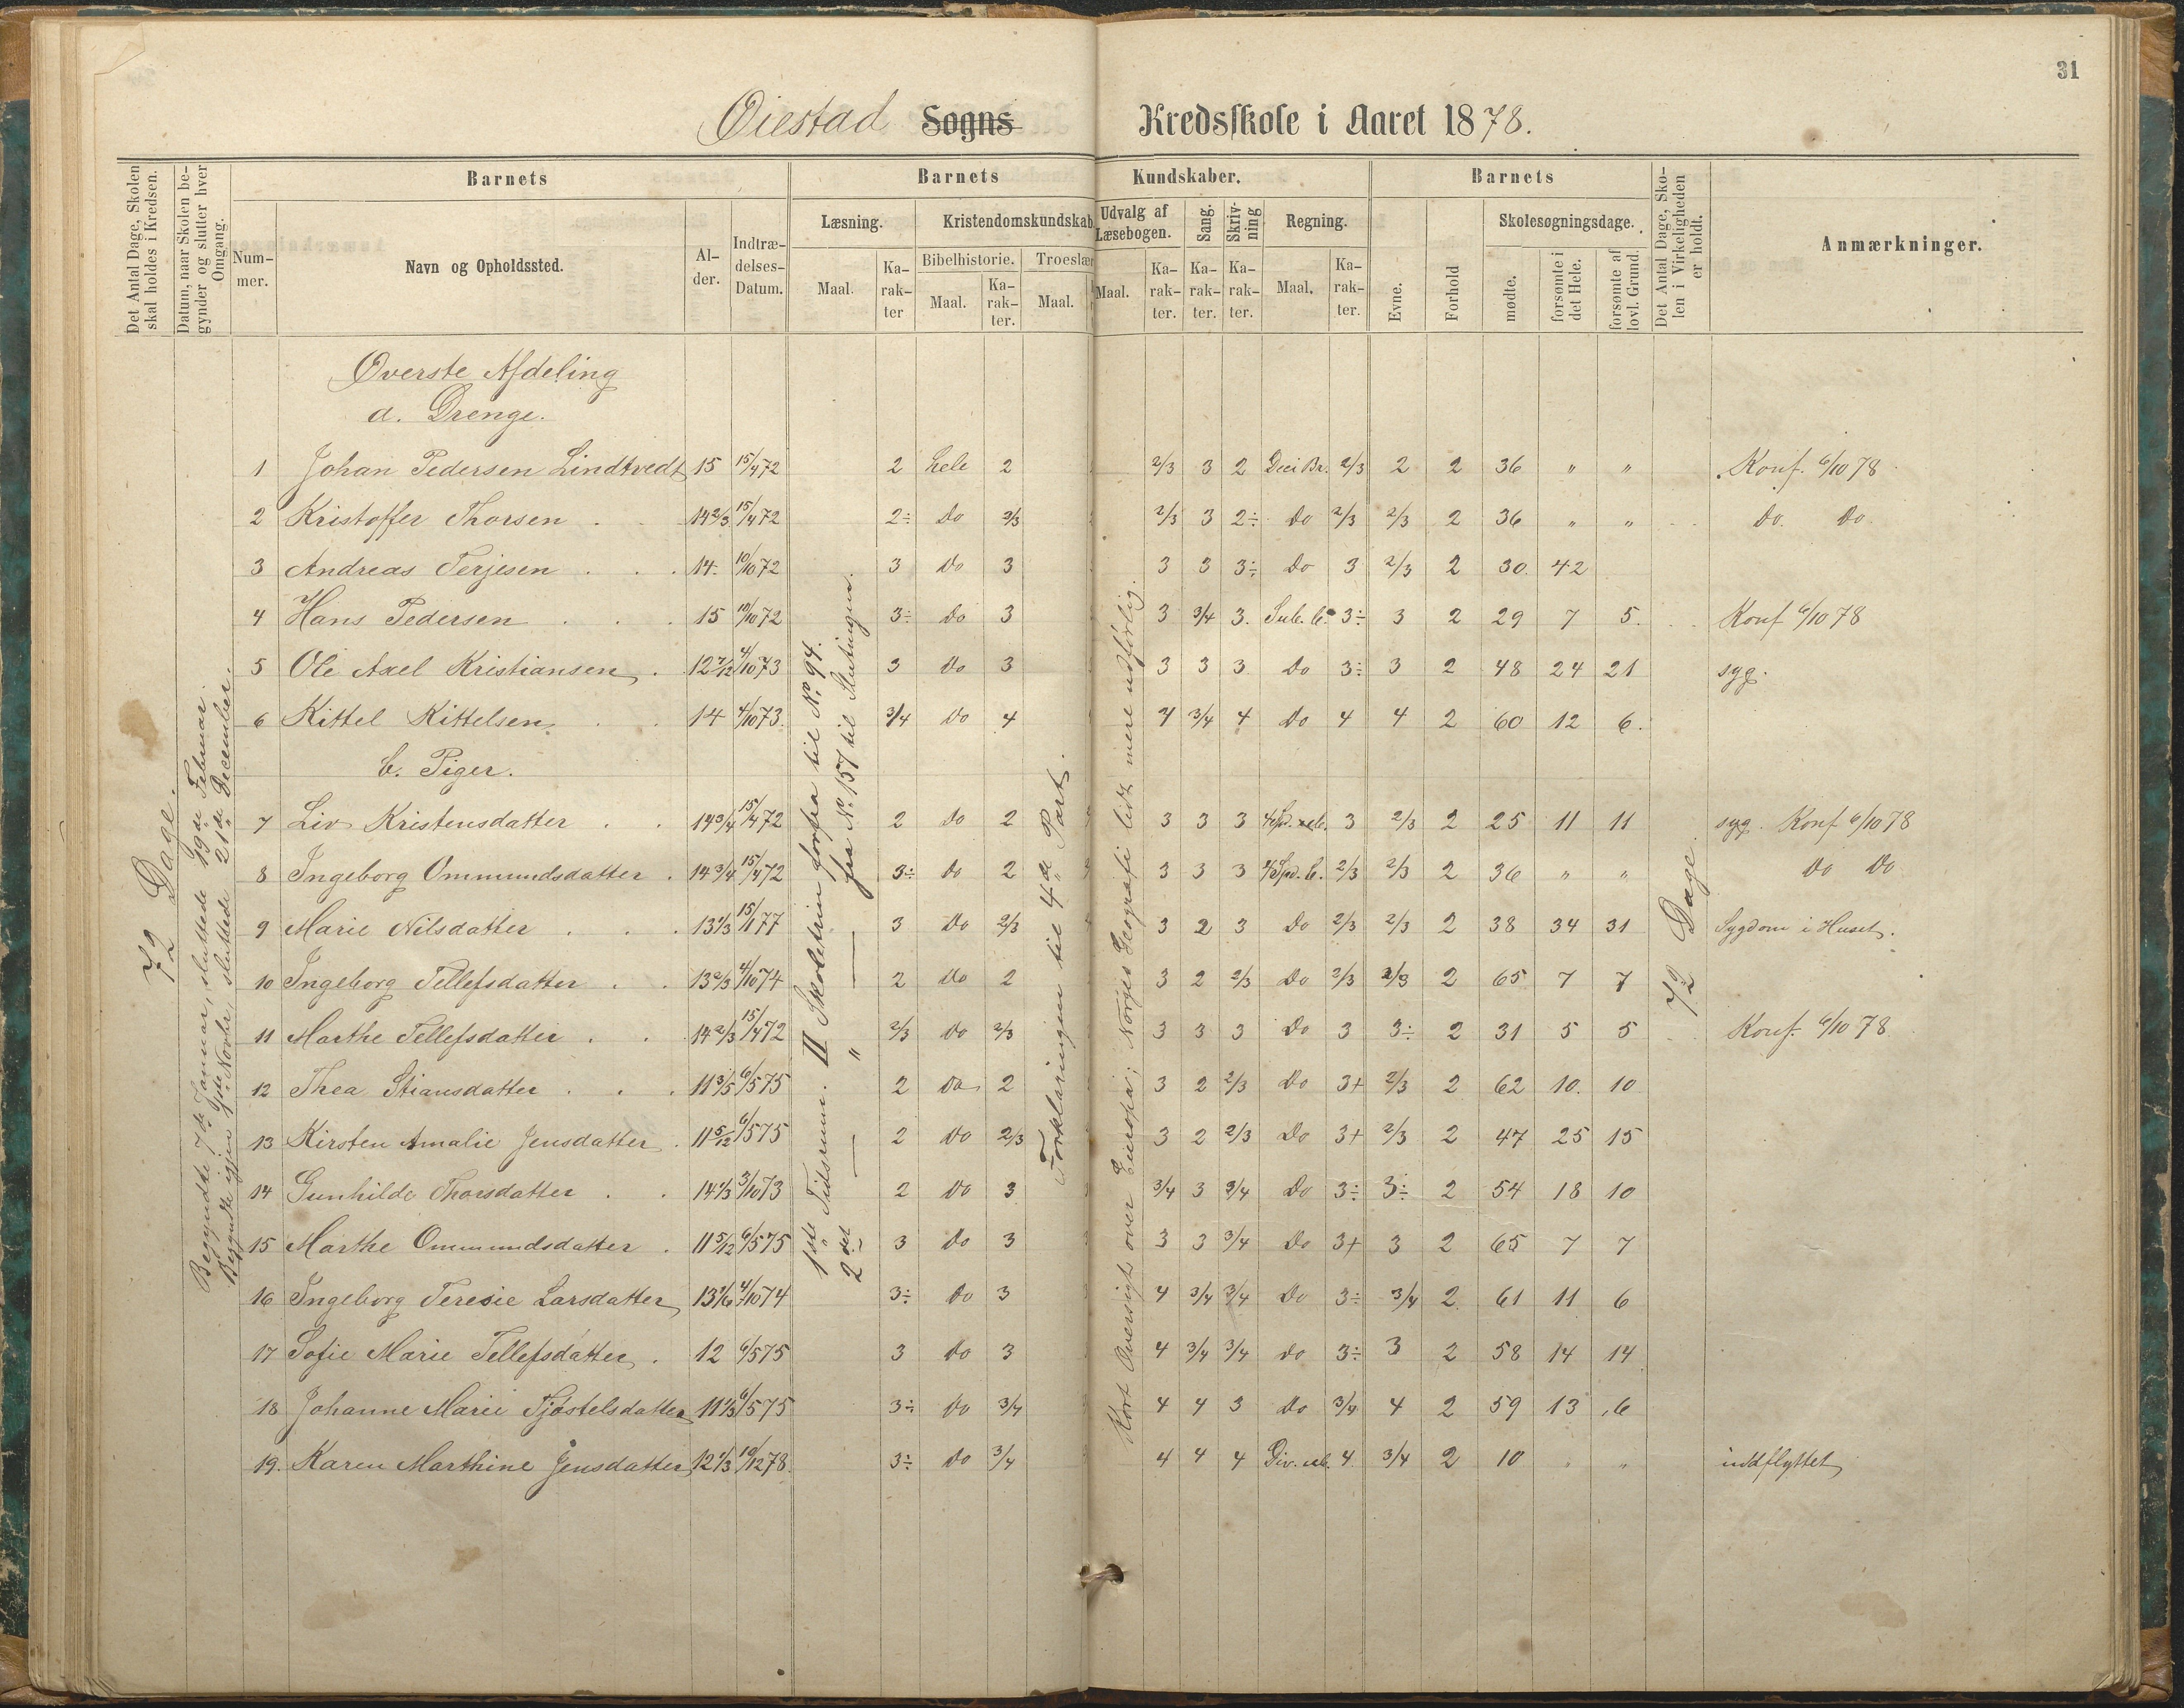 31
Øiestad Sogns Kredsskole i Aaret 1878.
Det Antal Dage, Skolen skal holdes i Kredsen.
Datum, naar Skolen begynder og slutter hver Omgang.
Barnets
Nummer.
Navn og Opholdssted.
Alder.
Indtrædelses-Datum.
Barnets Kundskaber.
Læsning.
Maal.
Karakter
Kristendomskundskab
Bibelhistorie.
Maal.
Karakter.
Troeslær
Maal.
Udvalg af Læsebogen.
Maal.
Karakter.
Sang.
Karakter.
Skrivning
Karakter.
Regning.
Maal.
Karakter.
Barnets
Evne.
Forhold
Skolesøgningsdage.
mødte.
forsømte i det Hele.
forsømte af lovl. Grund.
Det Antal Dage, Skolen i Virkeligheden er holdt.
Anmærkninger.
Øverste Afdeling
a. Drenge.
1 Johan Pedersen Lindtvedt 15 15/4 72 2 hele 2 2/3 3 2 Deci Br. 2/3 2 2 36 " " Konf. 6/10 78
2 Kristoffer Thorsen 14 2/3 15/4 72 2÷ Do 2/3 2/3 3 2÷ Do 2/3 2/3 2 36 " " Do. Do.
3 Andreas Terjesen 14. 10/10 72 3 Do 3 3 3 3÷ Do 3 2/3 2 30. 42
4 Hans Pedersen 15 10/10 72 3÷ Do 3 3 3/4 3. Sub. b. 3÷ 3 2 29 7 5. Konf 6/10 78
5 Ole Axel Kristiansen 12 7/12 4/10 73 3 Do 3 3 3 3 Do 3÷ 3 2 48 24 21 syg.
6 Kittel Kittelsen 14 4/10 73. 3/4 Do 4 4 3/4 4 Do 4 4 2 60 12 6.
b. Piger.
7 Liv Kristensdatter 14 3/4 15/4 72 2 Do 2 3 3 3 3 2/3 2 25 11 11 syg. Konf 6/10 78
8 Ingeborg Ommundsdatter 14 3/4 15/4 72 3÷ Do 2 3 3 3 4 Spd. b. 2/3 2/3 2 36 " " Do Do
9 Marie Nilsdatter 13 1/3 15/1 77 3 Do 2/3 3 2 3 Do 2/3 2/3 2 38 34 31 Sygdom i Huset.
10 Ingeborg Tellefsdatter 13 2/3 4/10 74 2 Do 2 3 2 2/3 Do 2/3 2/3 2 65 7 7
11 Marthe Tellefsdatter 14 2/3 15/4 72 2/3 Do 2/3 3 3 3 Do 3 3÷ 2 31 5 5 Konf. 6/10 78
12 Thea Stiansdatter 11 3/5 6/5 75 2 Do 2 3 2 2/3 Do 3+ 2/3 2 62 10. 10
13 Kirsten Amalie Jensdatter 11 5/12 6/5 75 2 Do 2/3 3 2 2/3 Do 3+ 2/3 2 47 25 15
14 Gunhilde Thorsdatter 14 1/3 3/10 73 2 Do 3 3/4 3 3/4 Do 3÷ 3÷ 2 54 18 10
15 Marthe Ommundsdatter 11 5/12 6/5 75 3 Do 3 3 3 3/4 Do 3+ 3 2 65 7 7
16 Ingeborg Teresie Larsdatter 13 1/6 4/10 74 3÷ Do 3 4 3/4 3/4 Do 3÷ 3/4 2. 61 11 6
17 Sofie Marie Tellefsdatter 12 6/5 75 3 Do 3 4 3/4 3/4 Do 3÷ 3 2 58 14 14
18 Johanne Marie Tjøstelsdatter 11 1/3 6/5 75 3÷ Do 3/4 4 4 3 Do 3/4 4 2 59 13 6
19. Karen Marthine Jensdatter 12 1/3 10/12 78. 3÷ Do 3/4 4 4 4 4 3/4 2 10 " " indflyttet
72 Dage.
Begyndte 7de Januar, sluttede 19de Februar.
Begyndte igjen Novbr, sluttede 21de December.
1ste Tidsrum. II Skoletrin forfra til No. 94.
2det — " — fra No. 157 til Slutningen.
Forklaringen til 4de Part.
Kort Oversigt over Europa; Norges Geografi lidt mere udførlig.
72 Dage